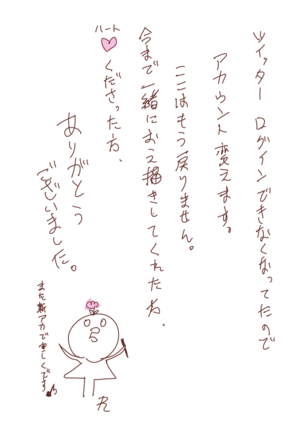 ツイッター ログインできなくなってたので
アカウント変えます。
ここはもう戻りません。
今まで一緒におえ描きしてくれたね、
ハート
♡くださった方、
ありがとう
ございました。
また新アカで宜しくです